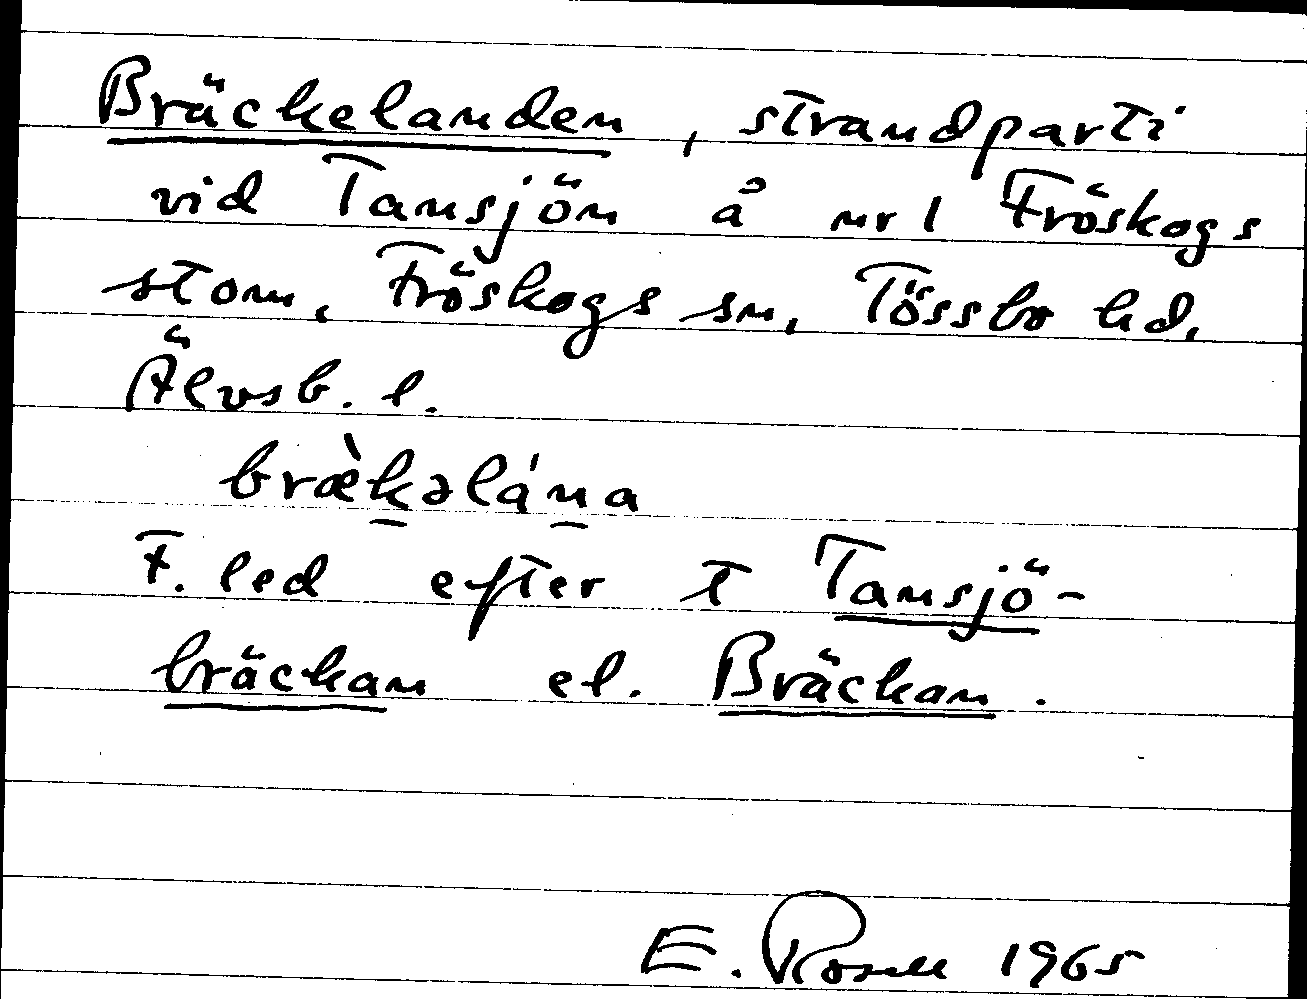 Bräckelanden, strandparti
vid Tansjön å nr 1 Fröskogs
stom, Fröskogs sn, Tössbo hd,
Älvsb. l.
bræ̀k̠əláṉa
F. led efter t Tansjö-
bräckan el. Bräckan.
E. Rosell 1965